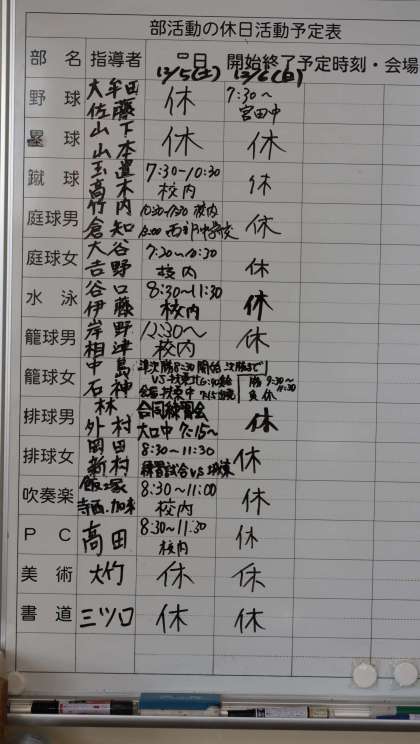 部活動の休日活動予定表
部 名 指導者 日 開始終了予定時刻・会場
12/5(土) 12/6(日)
野 球 大牟田 佐藤 休 7:30〜 宮田中
塁 球 山下 山本 休 休
蹴 球 高木 7:30〜10:30 校内 休
庭球男 竹内 倉知 校内 西部中学校 休
庭球女 大谷 吉野 7:30〜10:30 校内 休
水 泳 谷口 伊藤 8:30〜11:30 校内 休
籠球男 岸野 相津 12:30〜 校内 休
籠球女 中島 石神 準決勝8:30開始 勝 9:30〜11:30 負 休
排球男 林 外村 合同練習会 大口中 7:15〜 休
排球女 岡田 新村 8:30〜11:30 練習試合VS 休
吹奏楽 飯塚 寺西.加来 8:30〜11:00 校内 休
P C 高田 8:30〜11:30 校内 休
美 術 大竹 休 休
書 道 三ツ口 休 休